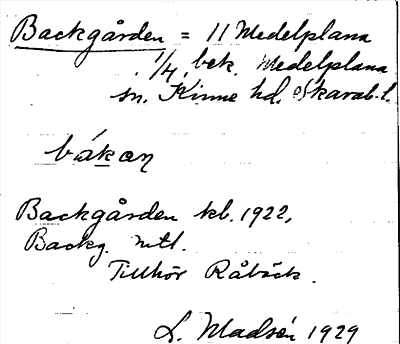 Backgården = 11 Medelplana
1/4, bek. Medelplana
sn. Kinne hd. Skarab. l.
båkan
Backgården kb. 1922,
Backg. mtl.
Tillhör Råbäck.
L. Madsén 1929